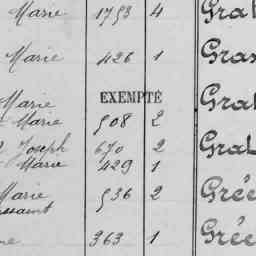 Marie 1753 4 Gra
Marie 426 1 Gra
Marie EXEMPTÉ Gra
Marie 508 2
Joseph 670 2 Gra
Marie 429 1
Marie 536 2 Grée
363 1 Grée